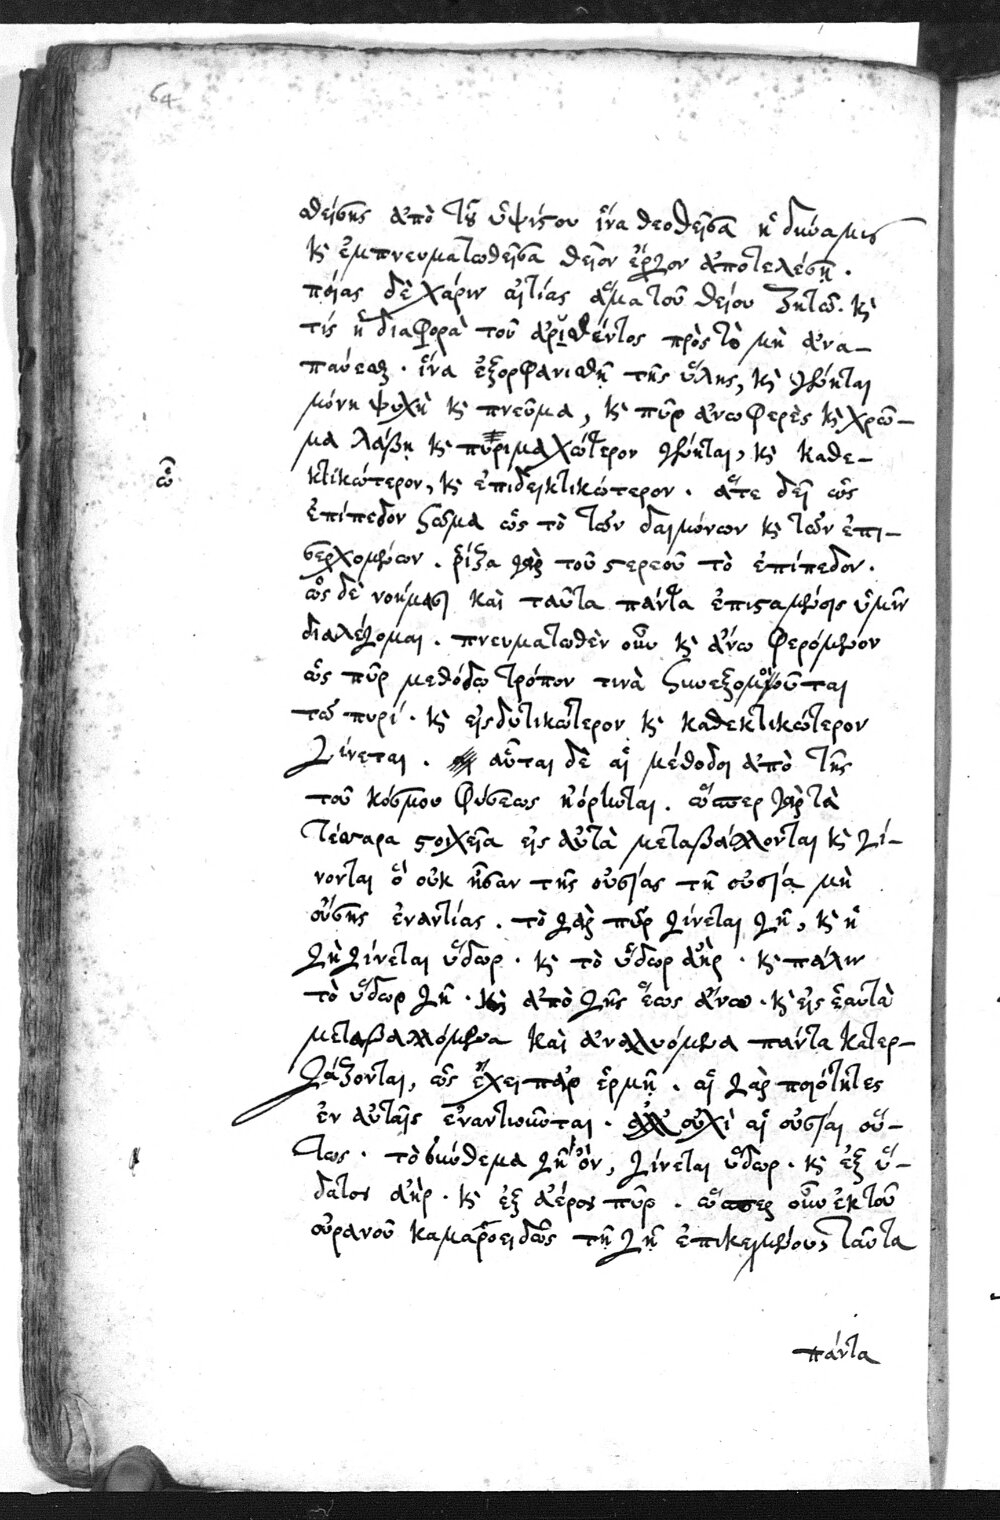 64
θείσης ἀπὸ τοῦ ὑψίστου ἵνα θεοθεῖσα ἡ δύναμις
κ̀ ἐμπνευματωθεῖσα θεῖον ἔργον ἀποτελέσῃ.
ποίας δὲ χάριν αἰτίας ἅμα τοῦ θείου ζητῶ. κ̀
τίς ἡ διαφορὰ τοῦ ἀριθέντος πρὸς τὸ μὴ ἀνα-
παύεσθαι. ἵνα ἐξορφανισθῇ τῆς ὕλης, κ̀ γένηται
μόνη ψυχὴ κ̀ πνεῦμα, κ̀ πῦρ ἀνωφερὲς κ̀ χρῶ-
μα λάβῃ κ̀ πυριμαχώτερον γένηται, κ̀ καθε-
κτικώτερον, κ̀ ἐπιδεικτικώτερον. ἅτε δεῖ ὡς
ἐπίπεδον σῶμα ὡς τὸ τῶν δαιμόνων κ̀ τῶν ἐπι-
σερχομένων. ῥίζα γὰρ τοῦ στερεοῦ τὸ ἐπίπεδον.
ὡς δὲ νοήμασι καὶ ταῦτα πάντα ἐπισταμένοις ὑμῖν
διαλέγομαι. πνευματωθὲν οὖν κ̀ ἄνω φερόμενον
ὡς πῦρ μεθόδω τρόπον τινὰ συνεξομοιοῦται
τῶ πυρί. κ̀ εἰσδυτικώτερον κ̀ καθεκτικώτερον
γίνεται. αὗται δὲ αἱ μέθοδοι ἀπὸ τῆς
τοῦ κόσμου φύσεως ηὕρηνται. ὥσπερ γὰρ τὰ
τέσσαρα στοιχεῖα εἰς αὐτὰ μεταβάλλονται κ̀ γί-
νονται ὃ οὐκ ἦσαν τῆς οὐσίας τῇ οὐσία μὴ
οὔσης ἐναντίας. τὸ γὰρ πῦρ γίνεται γῆ, κ̀ ἡ
γῆ γίνεται ὕδωρ. κ̀ τὸ ὕδωρ ἀήρ. κ̀ πάλιν
τὸ ὕδωρ γῆ. κ̀ ἀπὸ γῆς ἕως ἄνω. κ̀ εἰς ἑαυτὰ
μεταβαλλόμενα καὶ ἀναλλυόμενα πάντα κατερ-
γάζονται, ὡς ἔχει παρ' ἑρμῇ. αἱ γὰρ ποιότητες
ἐν αὐταῖς ἐναντιοῦνται. ἀλλ' οὐχὶ αἱ οὐσίαι οὕ-
τως. τὸ σύνθεμα γῆ ὂν, γίνεται ὕδωρ. κ̀ ἐξ ὕ-
δατος ἀήρ. κ̀ ἐξ ἀέρος πῦρ. ὥσπερ οὖν ἐκ τοῦ
οὐρανοῦ καμαροειδῶς τῇ γῇ ἐπικειμένου, ταῦτα
πάντα